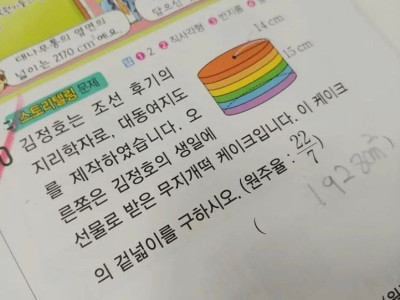 대나무통의 옆면의
넓이는 2170 cm²예요.
답 1 2 2 직사각형 3 반지름
14 cm
15 cm
스토리텔링 문제
김정호는 조선 후기의
지리학자로, 대동여지도
를 제작하였습니다. 오
른쪽은 김정호의 생일에
선물로 받은 무지개떡 케이크입니다. 이 케이크
의 겉넓이를 구하시오. (원주율 : 22/7)
(
1928cm²